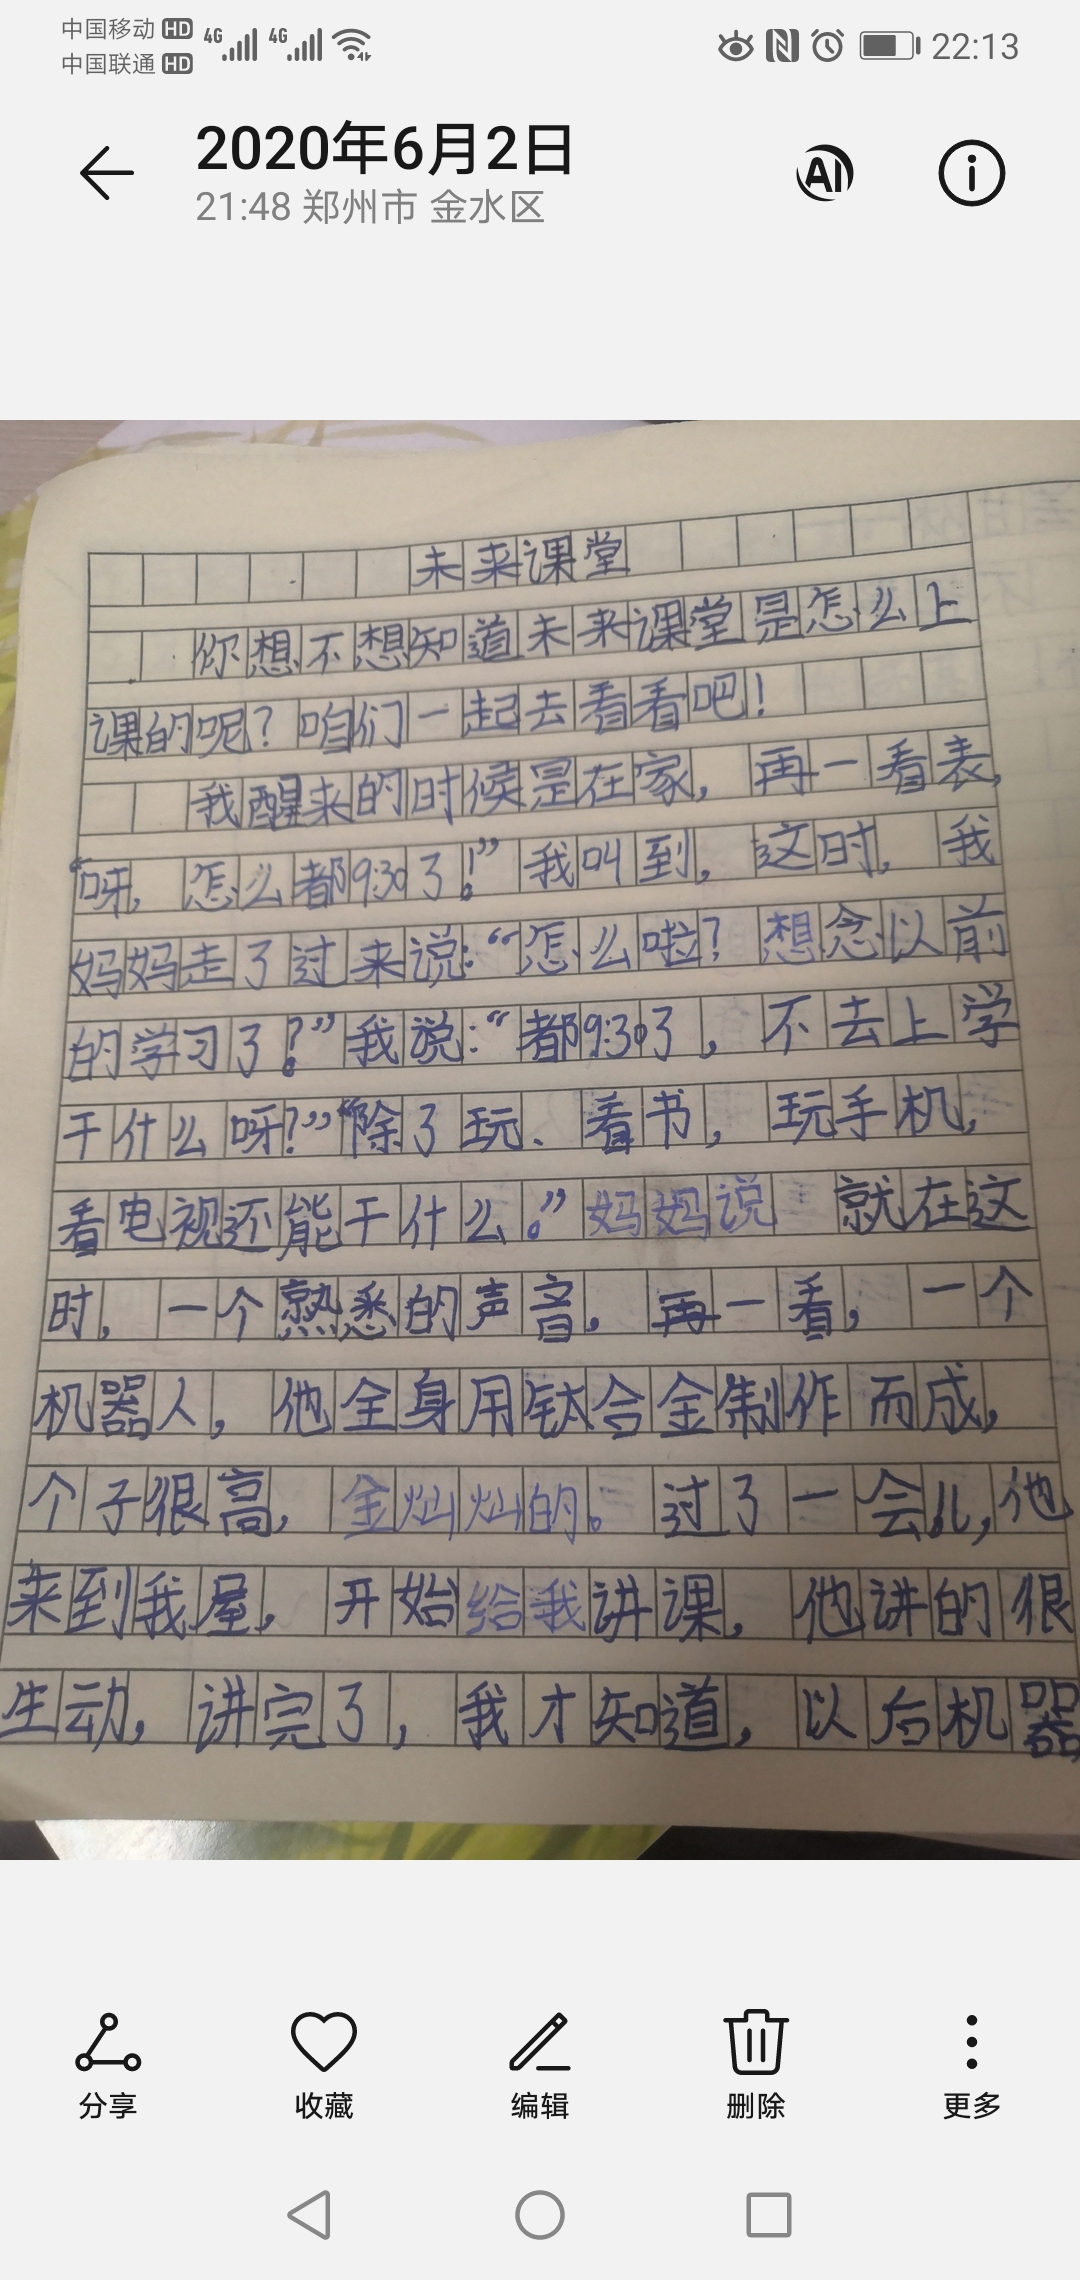 中国移动 HD 4G 4G 22:13
中国联通 HD
2020年6月2日
21:48 郑州市 金水区
AI
未来课堂
你想不想知道未来课堂是怎么上
课的呢？咱们一起去看看吧！
我醒来的时候是在家，再一看表，
“呀，怎么都9:30了！”我叫到，这时，我
妈妈走了过来说：“怎么啦？想念以前
的学习了？”我说：“都9:30了，不去上学
干什么呀？”“除了玩、看书，玩手机，
看电视还能干什么。”妈妈说 就在这
时，一个熟悉的声音。再一看，一个
机器人，他全身用钛合金制作而成，
个子很高，金灿灿的。过了一会儿，他
来到我屋，开始给我讲课，他讲的很
生动，讲完了，我才知道，以后机器
分享 收藏 编辑 删除 更多